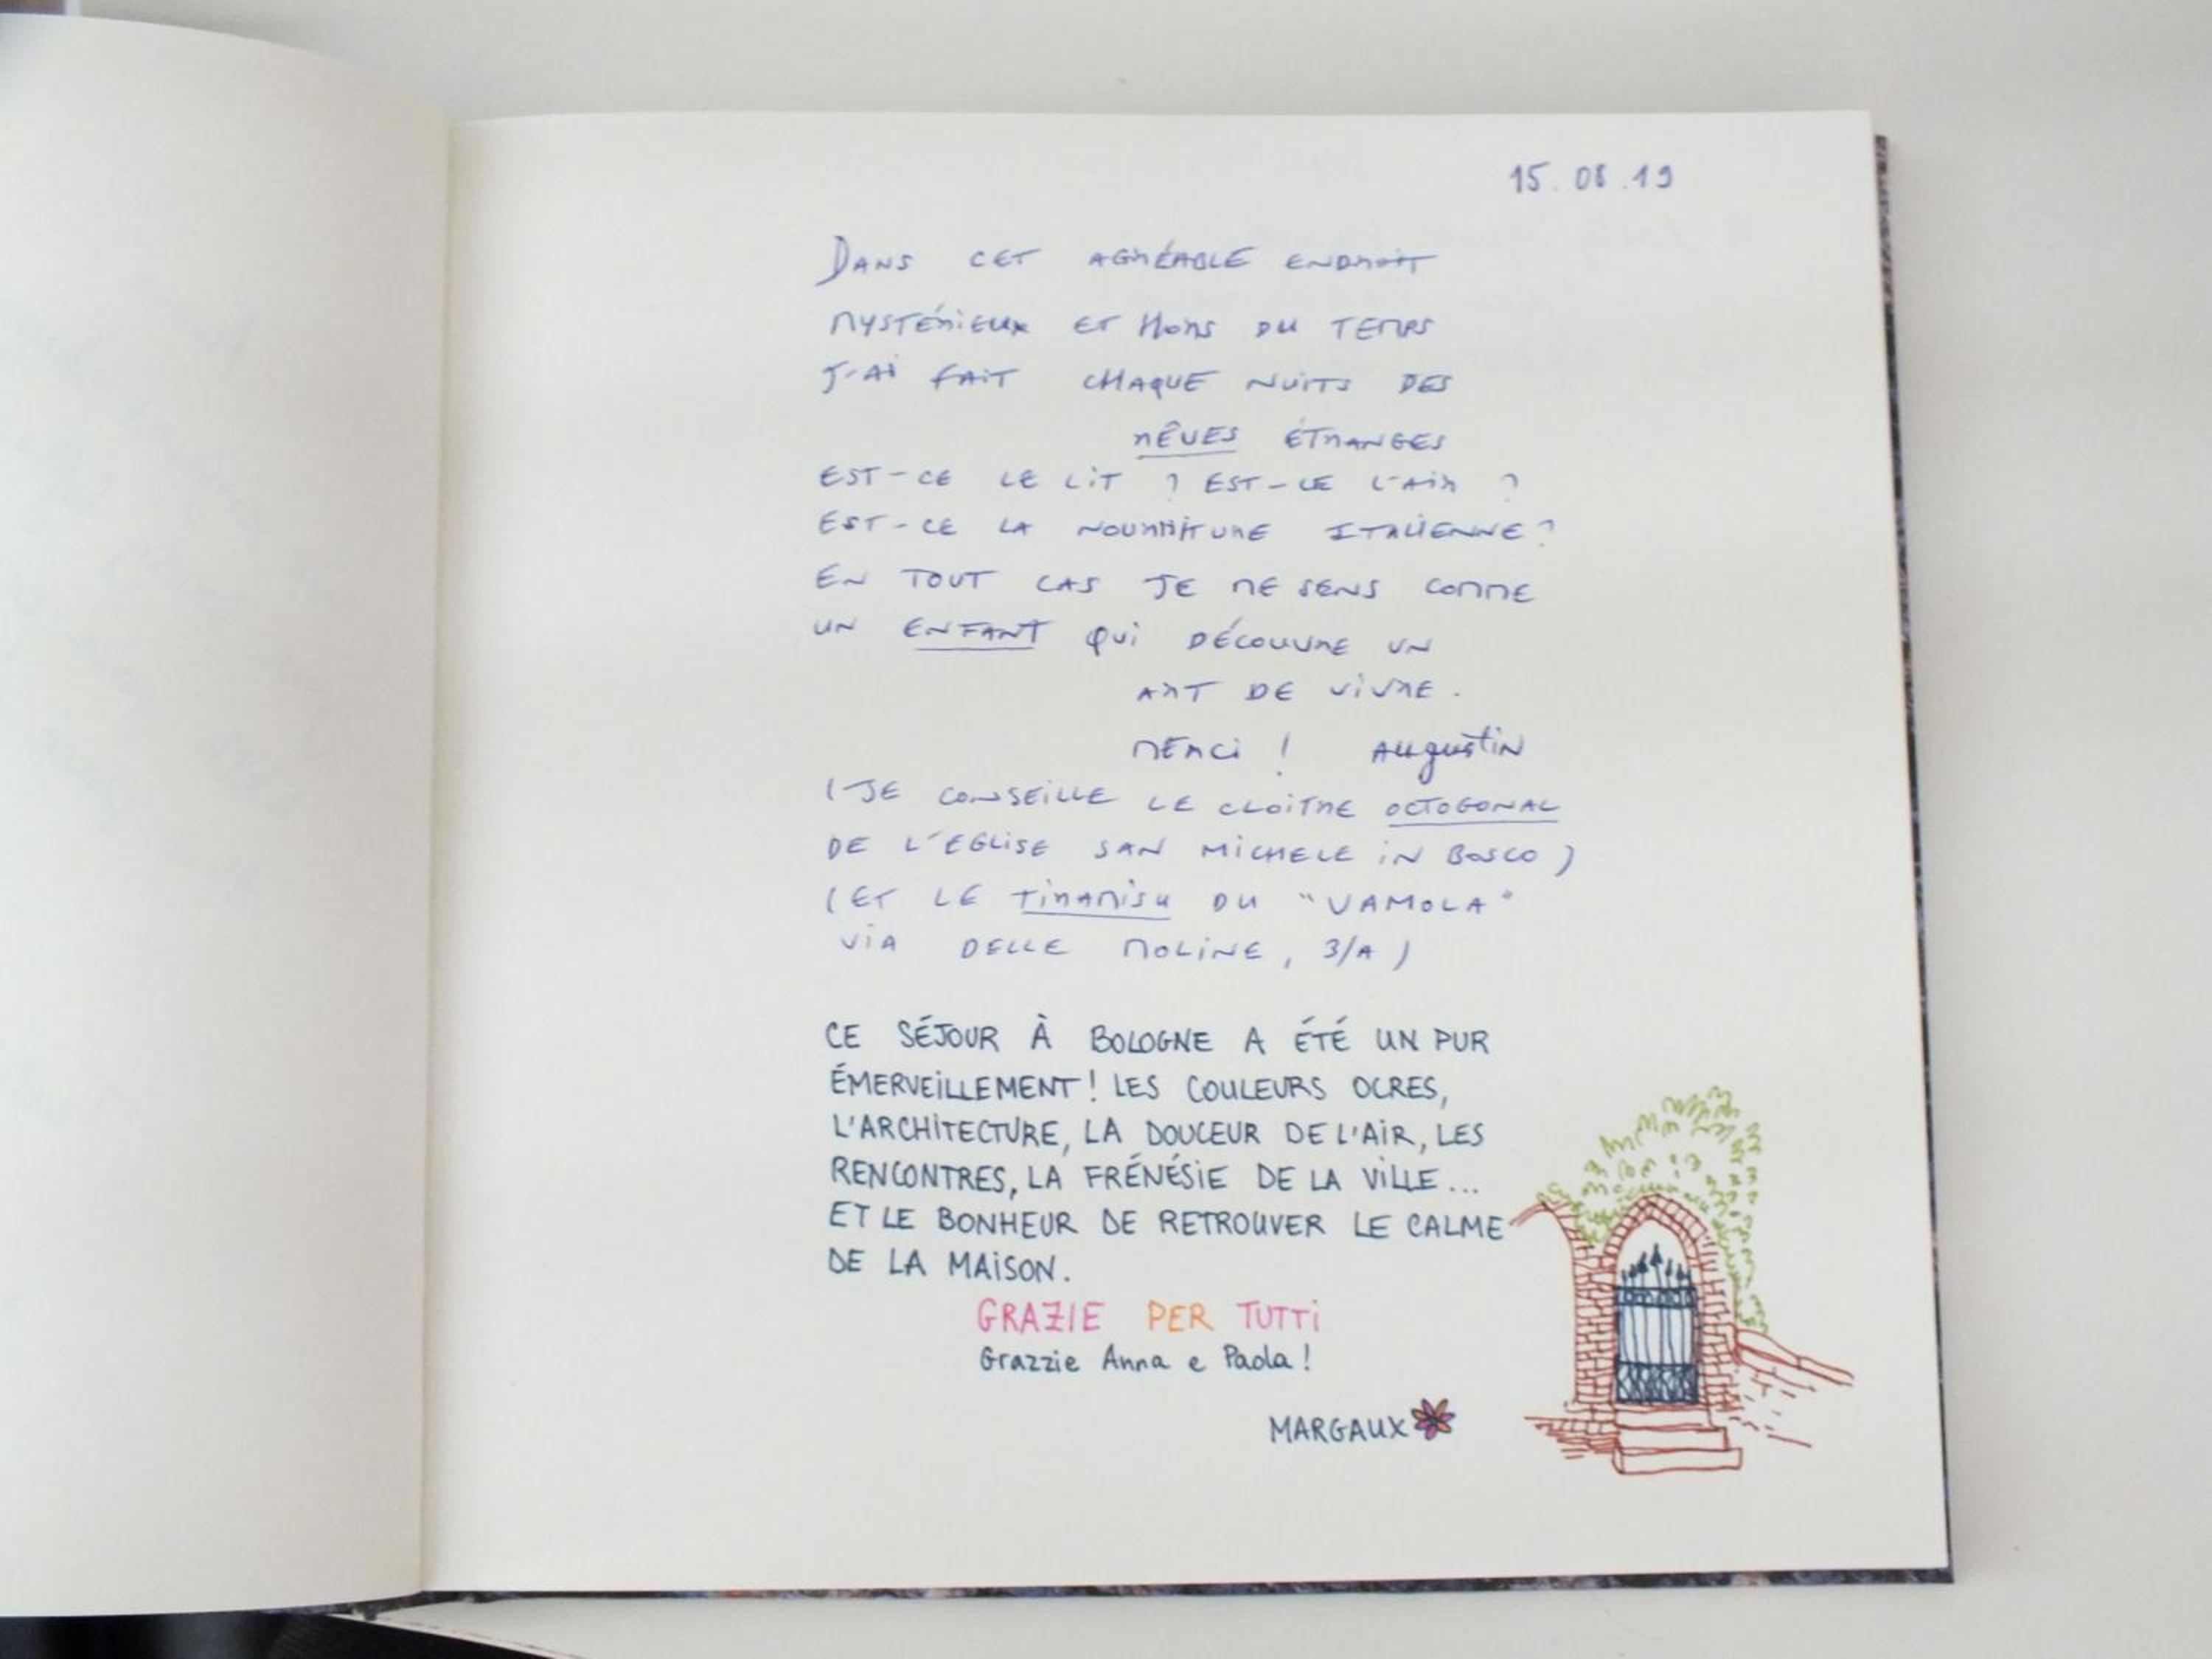 15.08.19
DANS CET AGRÉABLE ENDROIT
MYSTÉRIEUX ET HORS DU TEMPS
J'AI FAIT CHAQUE NUITS DES
RÊVES ÉTRANGES
EST-CE LE LIT ? EST-CE L'AIR ?
EST-CE LA NOURRITURE ITALIENNE?
EN TOUT CAS JE ME SENS COMME
UN ENFANT QUI DÉCOUVRE UN
ART DE VIVRE.
MERCI ! AUgustin
(JE CONSEILLE LE CLOITRE OCTOGONAL
DE L'EGLISE SAN MICHELE IN BOSCO)
(ET LE TIRAMISU DU "VAMOLA"
VIA DELLE MOLINE, 3/A)
CE SÉJOUR À BOLOGNE A ÉTÉ UN PUR
ÉMERVEILLEMENT! LES COULEURS OCRES,
L'ARCHITECTURE, LA DOUCEUR DE L'AIR, LES
RENCONTRES, LA FRÉNÉSIE DE LA VILLE...
ET LE BONHEUR DE RETROUVER LE CALME
DE LA MAISON.
GRAZIE PER TUTTI
Grazzie Anna e Paola!
MARGAUX